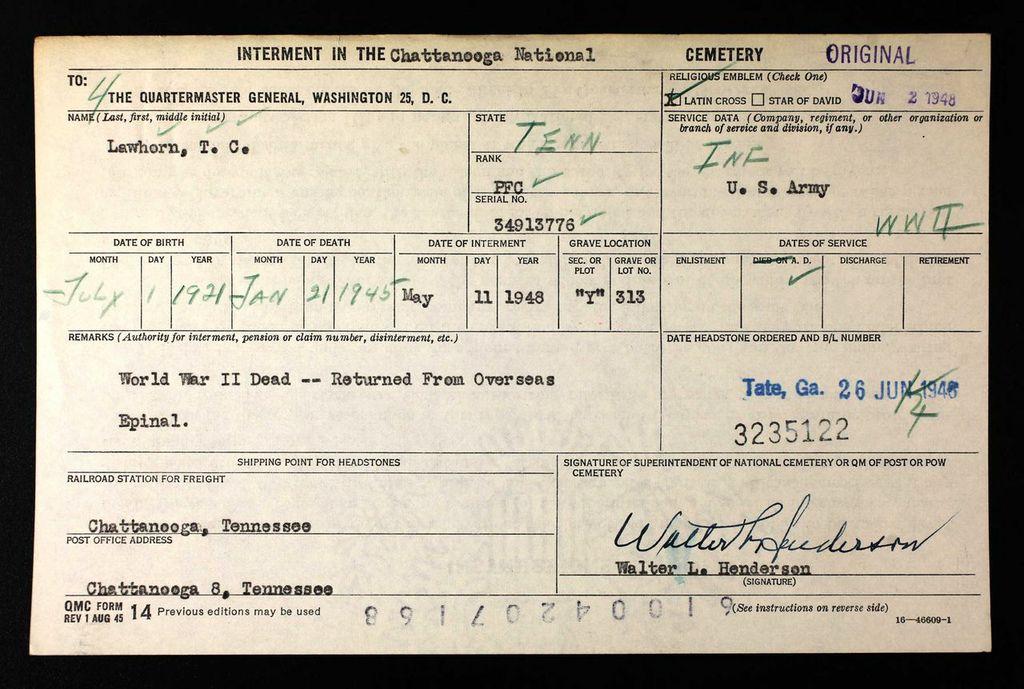 INTERMENT IN THE Chattanooga National CEMETERY ORIGINAL
TO: 4
THE QUARTERMASTER GENERAL, WASHINGTON 25, D. C.
RELIGIOUS EMBLEM (Check One)
LATIN CROSS STAR OF DAVID JUN 2 1948
NAME (Last, first, middle initial)
Lawhorn, T. C.
STATE
TENN
RANK
PFC
SERIAL NO.
34913776
SERVICE DATA (Company, regiment, or other organization or
branch of service and division, if any.)
INF
U. S. Army
WW II
DATE OF BIRTH DATE OF DEATH DATE OF INTERMENT GRAVE LOCATION DATES OF SERVICE
MONTH DAY YEAR MONTH DAY YEAR MONTH DAY YEAR SEC. OR PLOT GRAVE OR LOT NO. ENLISTMENT DIED ON A. D. DISCHARGE RETIREMENT
July 1 1921 JAN 21 1945 May 11 1948 "Y" 313
REMARKS (Authority for interment, pension or claim number, disinterment, etc.)
World War II Dead -- Returned From Overseas
Epinal.
DATE HEADSTONE ORDERED AND B/L NUMBER
Tate, Ga. 26 JUN 1948
3235122
SHIPPING POINT FOR HEADSTONES
RAILROAD STATION FOR FREIGHT
Chattanooga, Tennessee
POST OFFICE ADDRESS
Chattanooga 8, Tennessee
SIGNATURE OF SUPERINTENDENT OF NATIONAL CEMETERY OR QM OF POST OR POW
CEMETERY
Walter L. Henderson
Walter L. Henderson
(SIGNATURE)
QMC FORM
REV 1 AUG 45 14 Previous editions may be used
(See instructions on reverse side)
16—46609-1